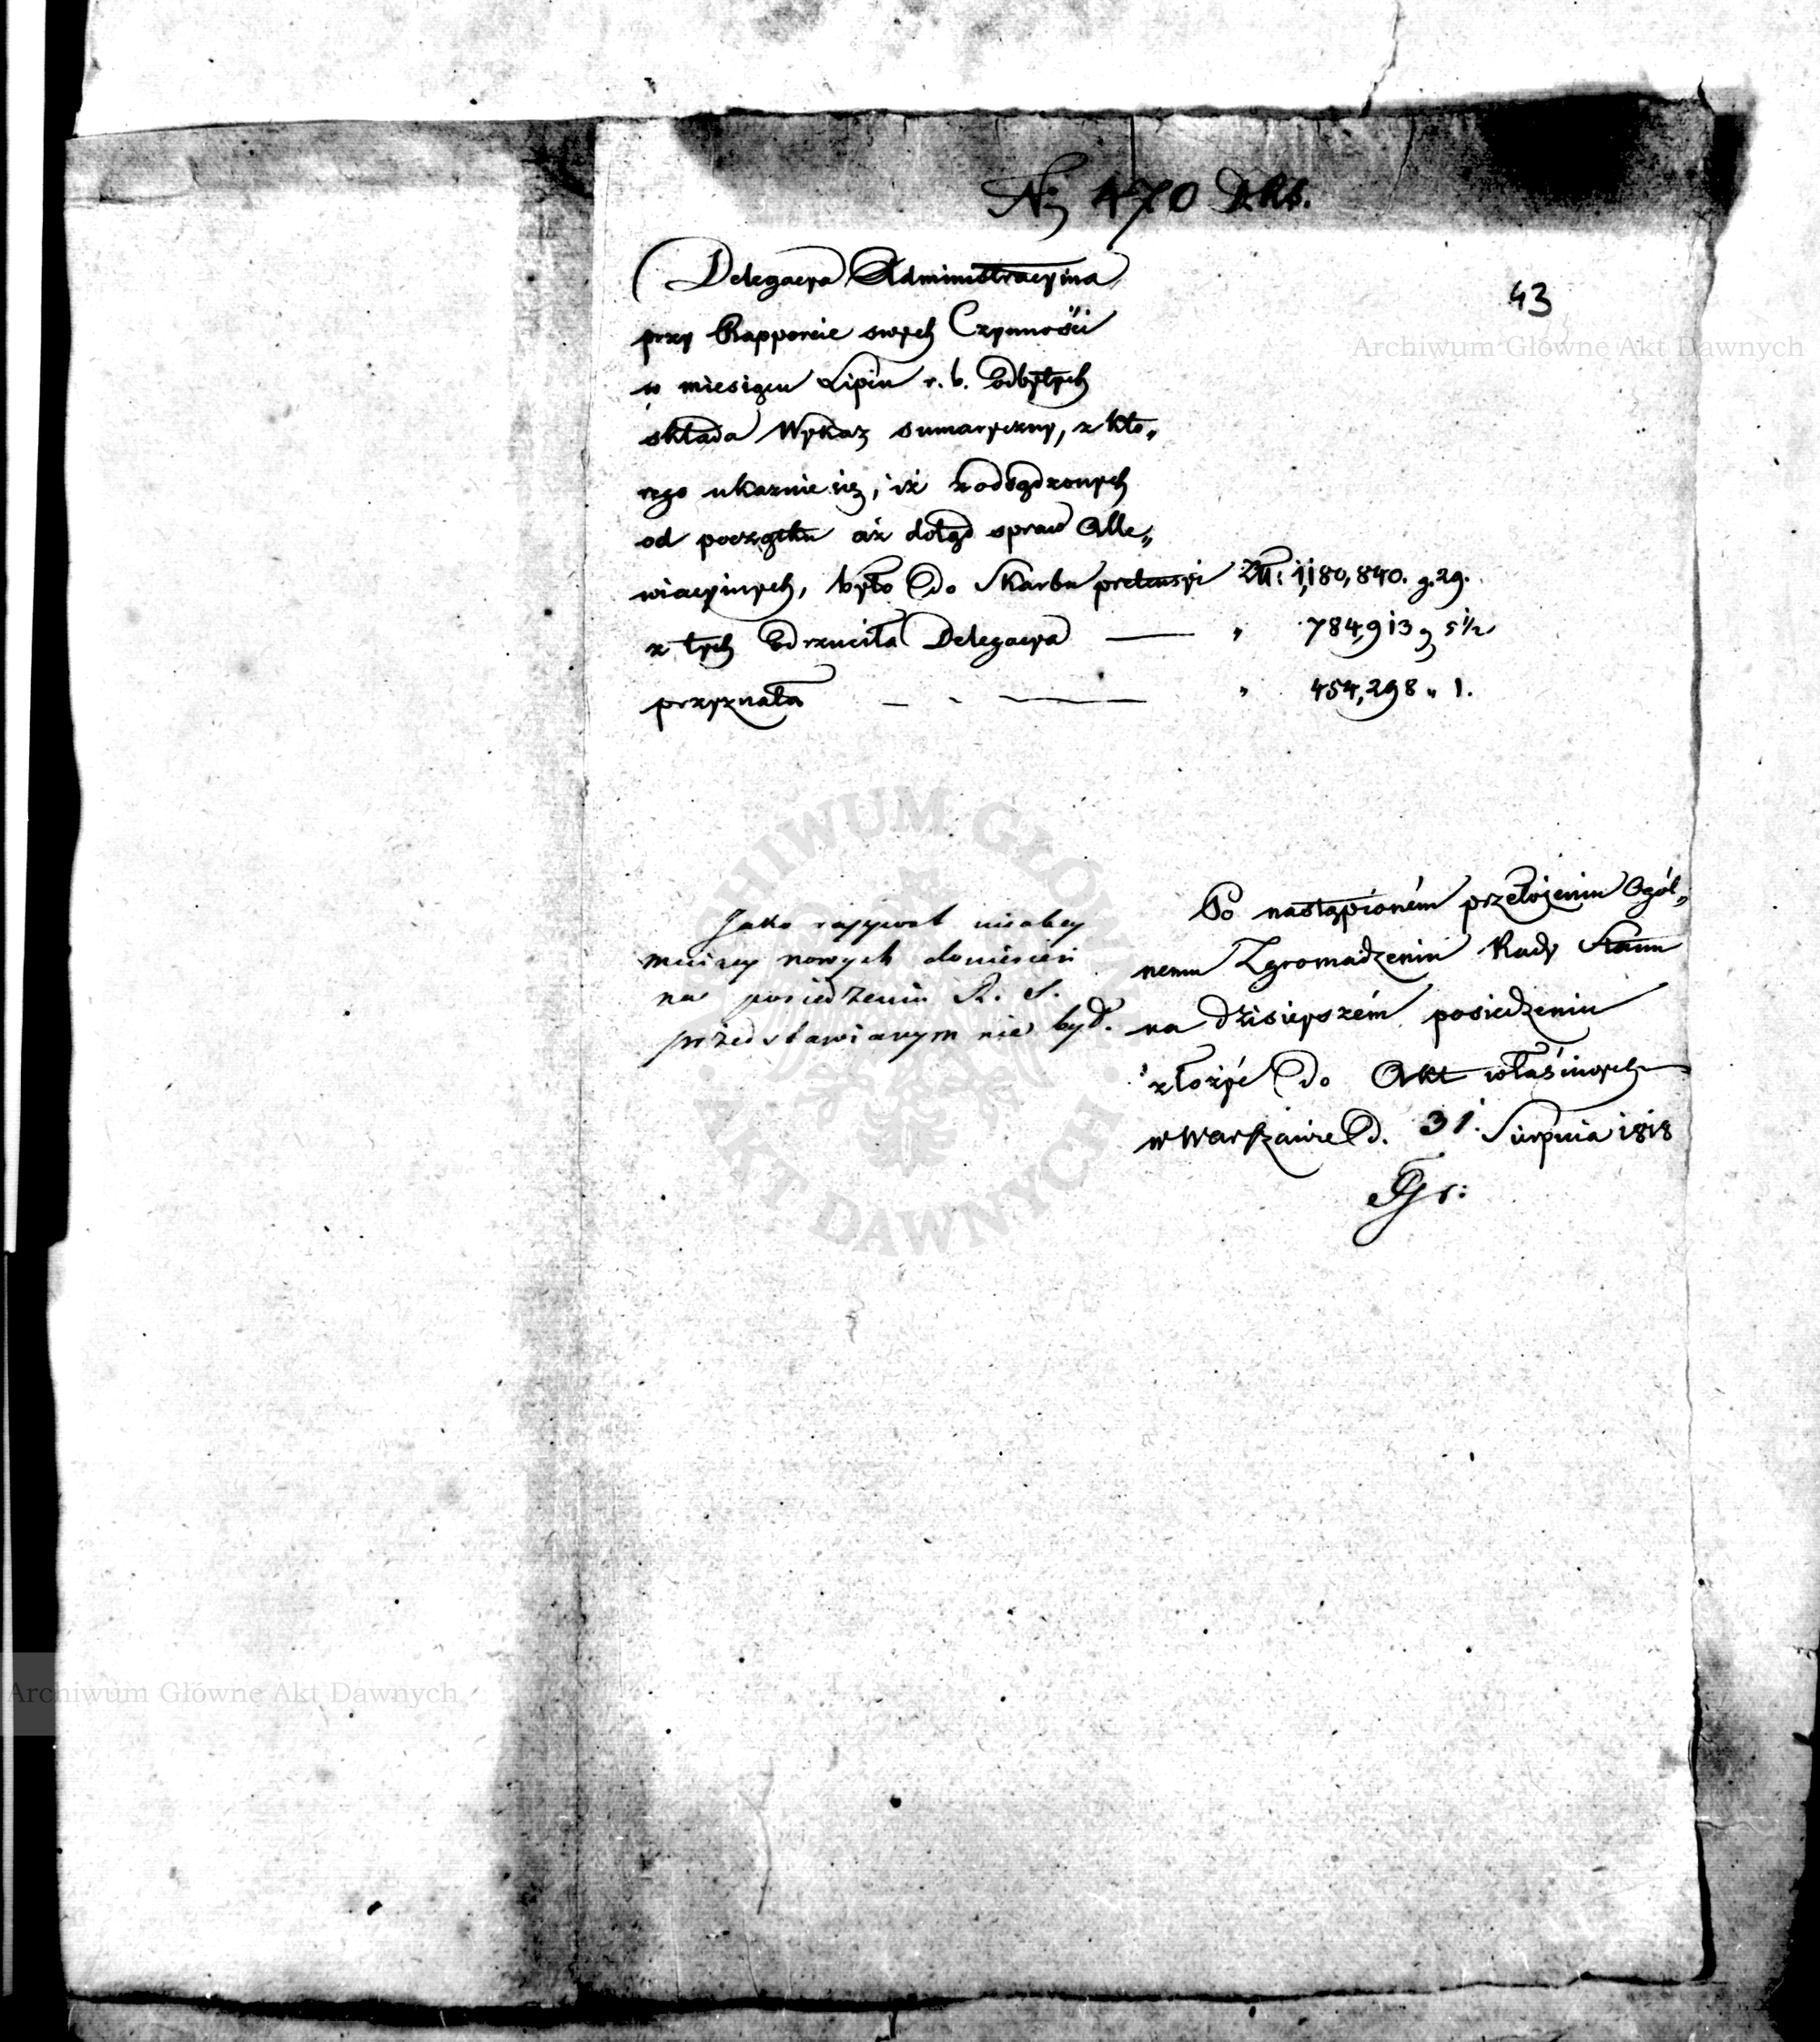 No 470 D.R.S.
43
Delegacya Administracyina
przy Rapporcie swych Czynności
w miesiącu Lipcu r. b. Odbytych
składa Wykaz sumaryczny, z któ„
rego ukazuie się, iż z odsądzonych
od początku aż dotąd spraw Alle„
wiacyinych, było do Skarbu pretensyi Zł: 1,180,840. g. 29.
z tych Odrzuciła Delegacya — „ 784,913 g 5 1/2
przyznała — - — „ 454,298 „ 1.
Jako rapport nieobey
muiący nowych doniesień
na posiedzeniu R. S.
przedstawianym nie był.
Po nastąpioném przełożeniu Ogól„
nemu Zgromadzeniu Rady Stanu
na dzisieyszém posiedzeniu
złożyć do Akt właściwych
w Warszawie d. 31. Sierpnia 1818
Archiwum Główne Akt Dawnych
ARCHIWUM GŁÓWNE AKT DAWNYCH
Archiwum Główne Akt Dawnych